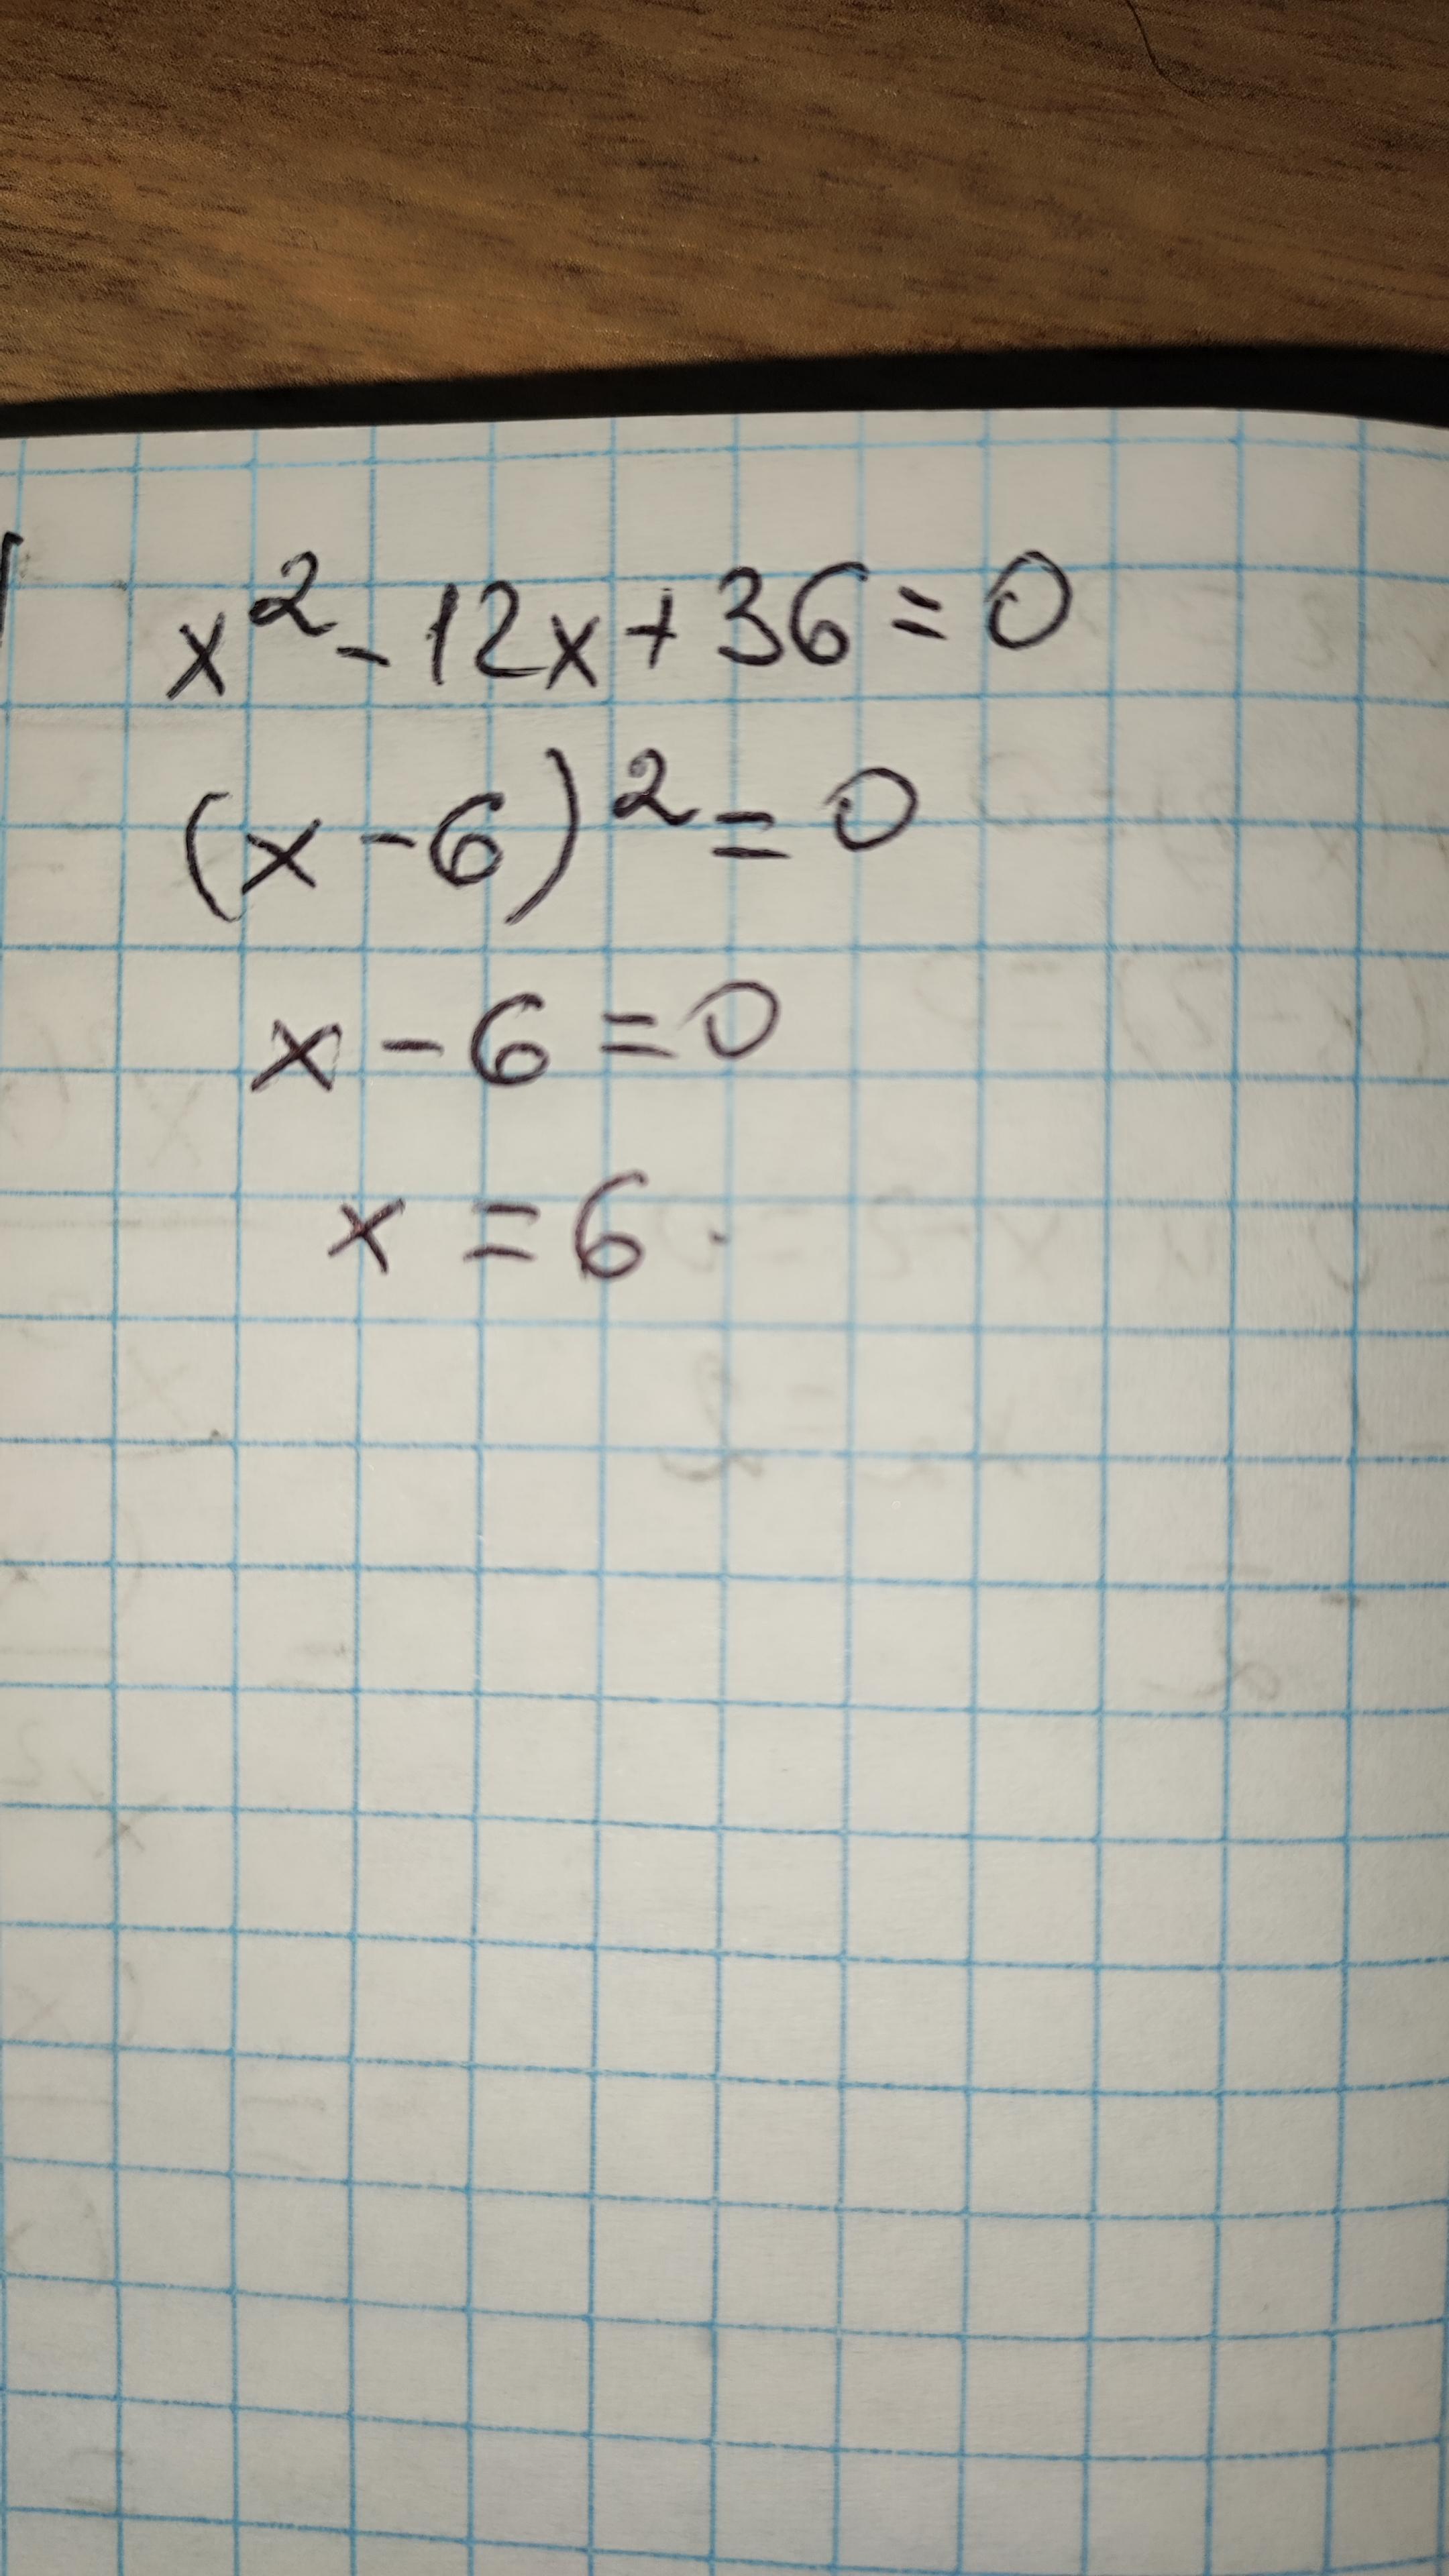 x² - 12x + 36 = 0
(x - 6)² = 0
x - 6 = 0
x = 6